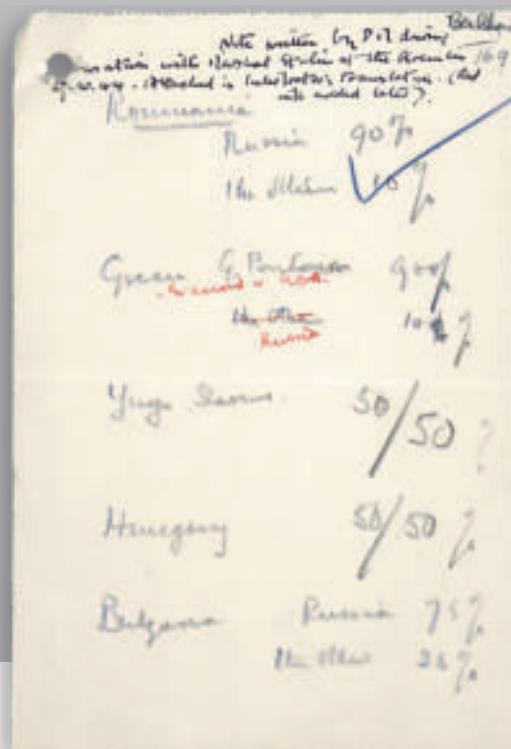 Note written by P.M. during
with Marshal Stalin at the Kremlin 169
Attached is Interpreter's translation. (Red
ink added later).
Roumania
Russia 90%
The others 10%
Greece G. Britain 90%
in accord with USA
The others 10%
Russia
Yugo Slavia 50/50 %
Hungary 50/50 %
Bulgaria Russia 75%
The others 25%